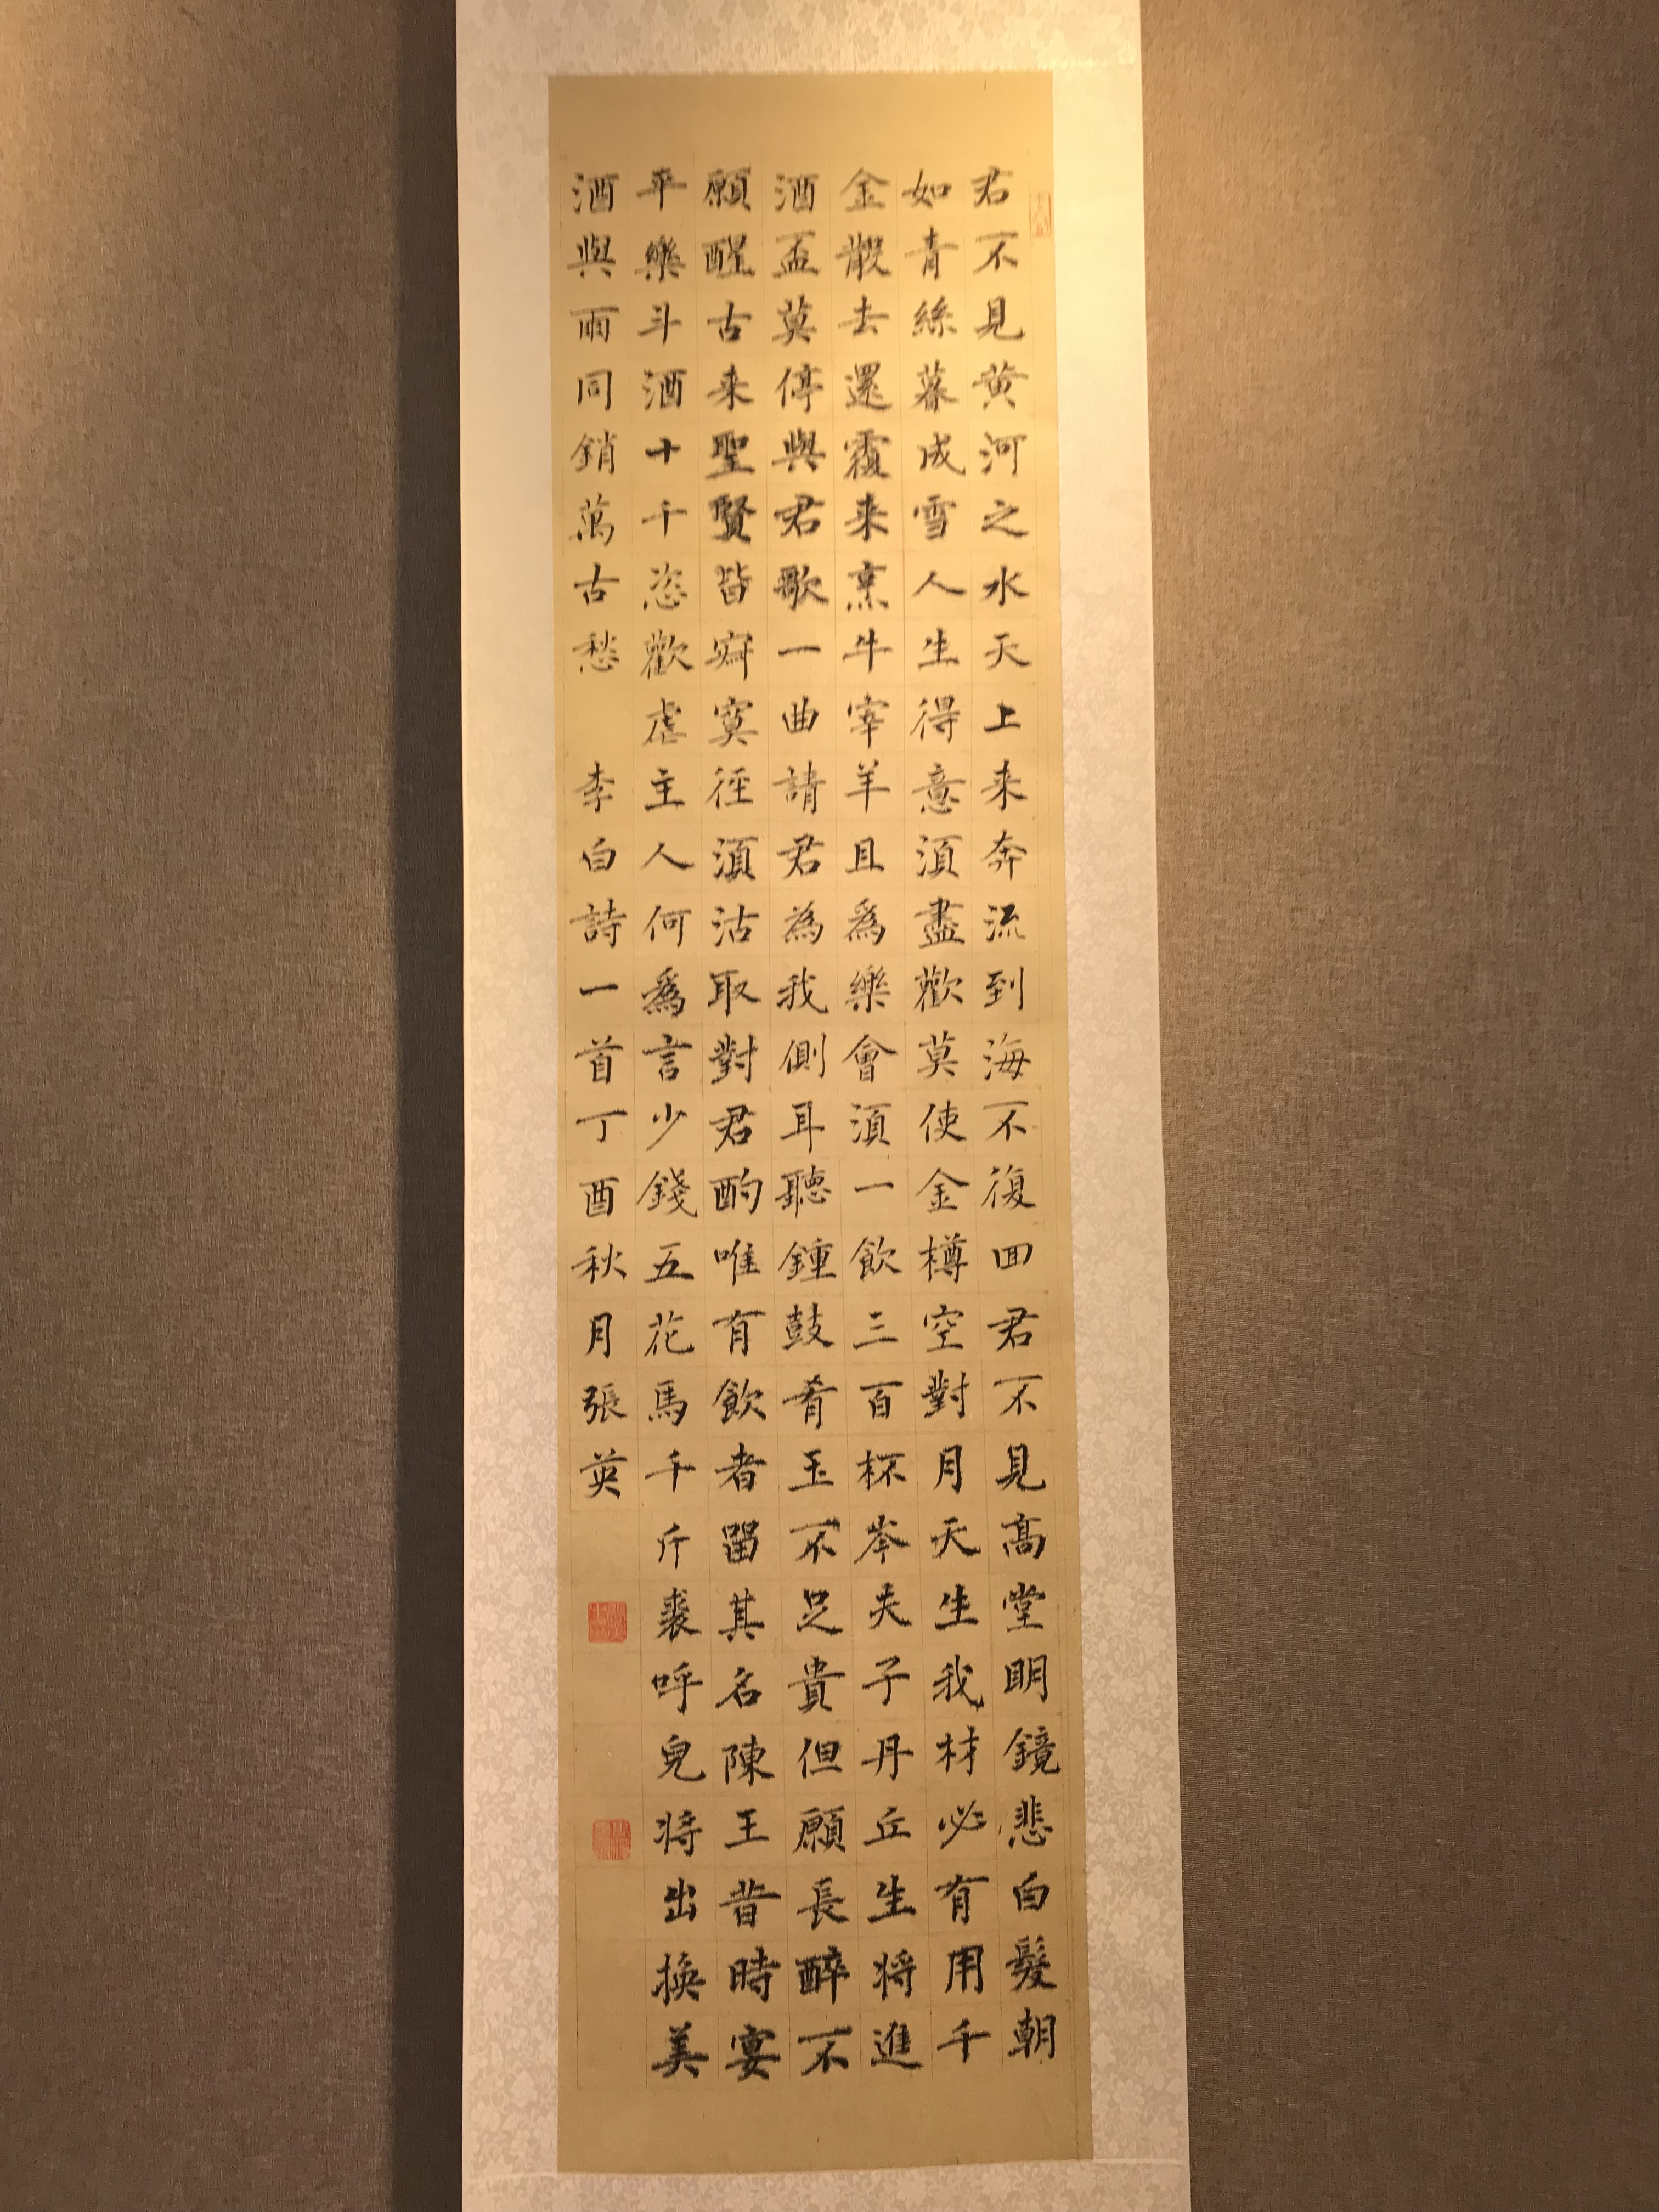 君不見黄河之水天上来奔流到海不復回君不見高堂明鏡悲白髮朝
如青絲暮成雪人生得意須盡歡莫使金樽空對月天生我材必有用千
金散去還覆来烹牛宰羊且爲樂會須一飲三百杯岑夫子丹丘生将進
酒盃莫停與君歌一曲請君為我側耳聽鍾鼓肴玉不足貴但願長醉不
願醒古来聖賢皆寂寞徑須沽取對君酌唯有飲者留其名陳王昔時宴
平樂斗酒十千恣歡虐主人何爲言少錢五花馬千斤裘呼兒将出換美
酒與雨同銷萬古愁 李白詩一首丁酉秋月張英